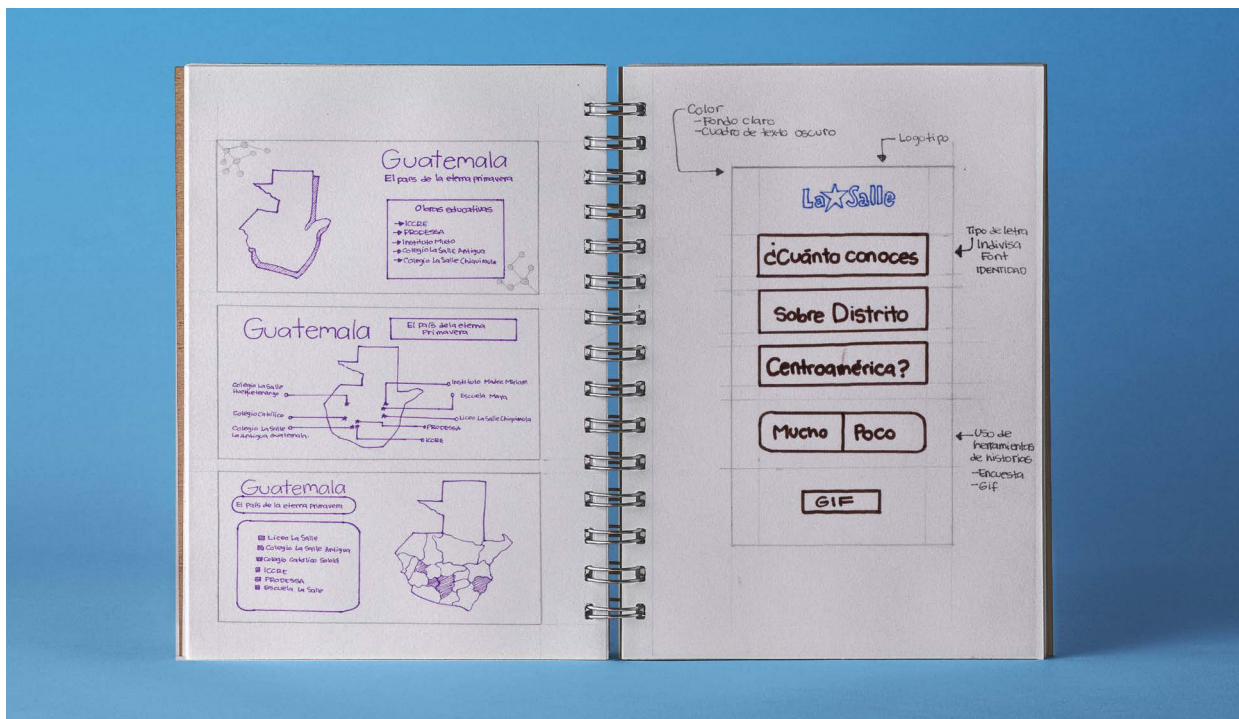 Guatemala
El país de la eterna primavera
Obras educativas
ICCRE
PRODESSA
Instituto Mixto
Colegio La Salle Antigua
Colegio La Salle Chiquimula
Guatemala
El país de la eterna
Primavera
Colegio La Salle
Huehuetenango
Colegio Católico
Colegio La Salle
La Antigua Guatemala
Instituto Madre Miriam
Escuela Maya
Liceo La Salle Chiquimula
PRODESSA
ICCRE
Guatemala
El país de la eterna primavera
Liceo La Salle
Colegio La Salle Antigua
Colegio Católico Sololá
ICCRE
PRODESSA
Escuela La Salle
Color
-Fondo claro
-Cuadro de texto oscuro
Logotipo
La Salle
¿Cuánto conoces
Sobre Distrito
Centroamérica?
Mucho Poco
GIF
Tipo de letra
Indivisa
Font
IDENTIDAD
Uso de
herramientas
de historias
-Encuesta
-Gif